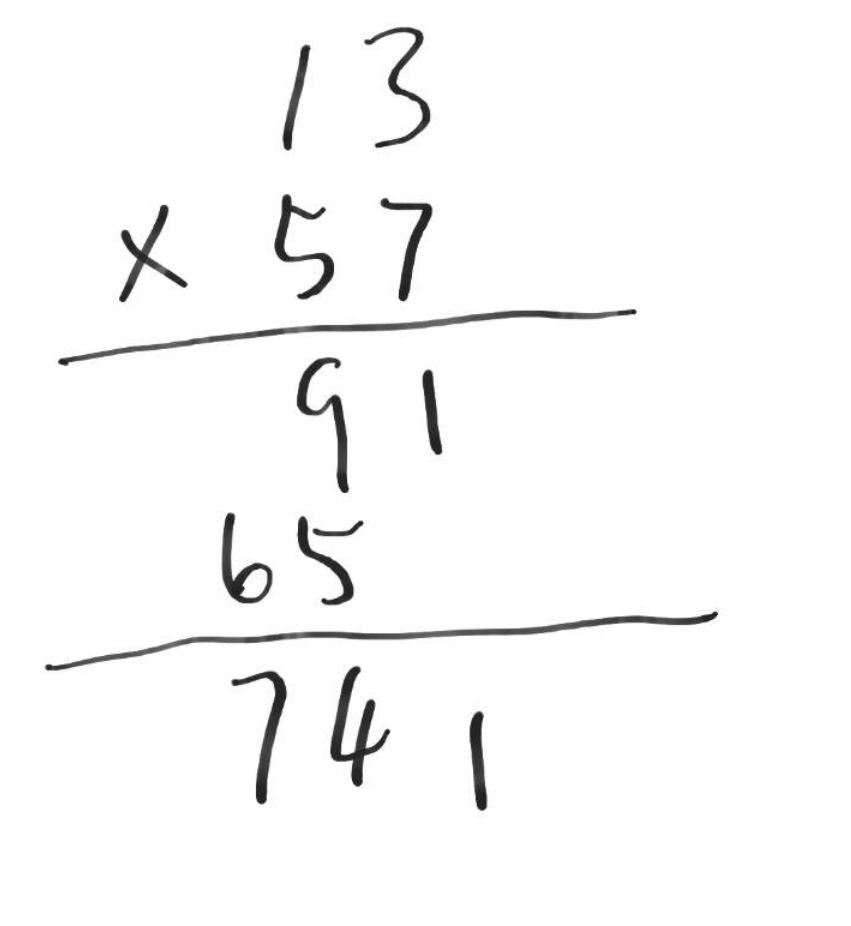 13
× 57
91
65
741